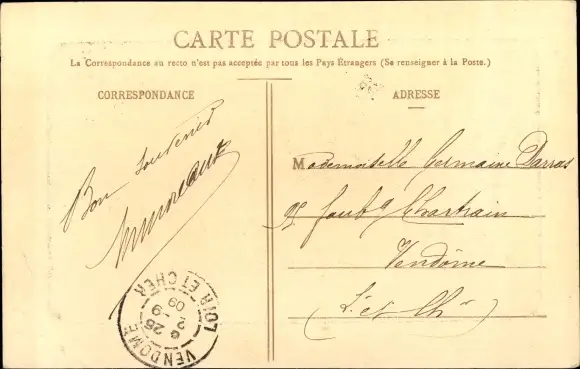 CARTE POSTALE
La Correspondance au recto n'est pas acceptée par tous les Pays Étrangers (Se renseigner à la Poste.)
CORRESPONDANCE
Bon souvenir
ADRESSE
Mademoiselle Germaine Darras
faubg Chartrain
Vendôme
(L. et Ch.)
VENDOME
26 -9
09
LOIR ET CHER